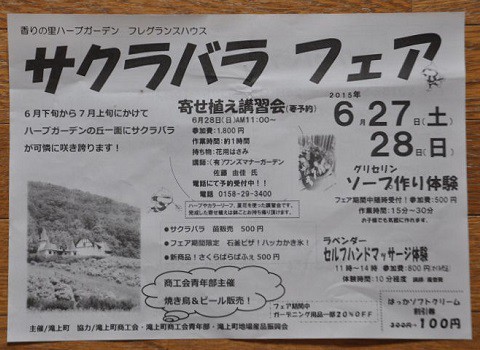 香りの里ハーブガーデン フレグランスハウス
サクラバラ フェア
6月下旬から7月上旬にかけて
ハーブガーデンの丘一面にサクラバラ
が可憐に咲き誇ります！
寄せ植え講習会(要予約)
6月28日(日)AM11:00～
参加費:1,800円
作業時間:約1時間
持ち物:花用はさみ
講師:(有)ワンズマナーガーデン
佐藤 由佳 氏
電話にて予約受付中！！
電話 0158-29-3400
ハーブやカラーリーフ、草花を使った講習会です。
完成した寄せ植えは鉢ごとお持ち帰り頂けます。
2015年
6月27日(土)
28日(日)
グリセリン
ソープ作り体験
フェア期間中随時受付！参加費:500円
作業時間:15分～30分
お子様でも気軽に作れます。
ラベンダー
セルフハンドマッサージ体験
11時～14時 参加費:800円
体験時間:10分程度
●サクラバラ 苗販売 500円
●フェア期間限定 石釜ピザ！ハッカかき氷！
●新商品！さくらばらぱふぇ 500円
商工会青年部主催
焼き鳥＆ビール販売！
フェア期間中
ガーデニング用品一部20%OFF
はっかソフトクリーム
割引券
300円→100円
主催/滝上町 協力/滝上町商工会・滝上町商工会青年部・滝上町地場産品振興会